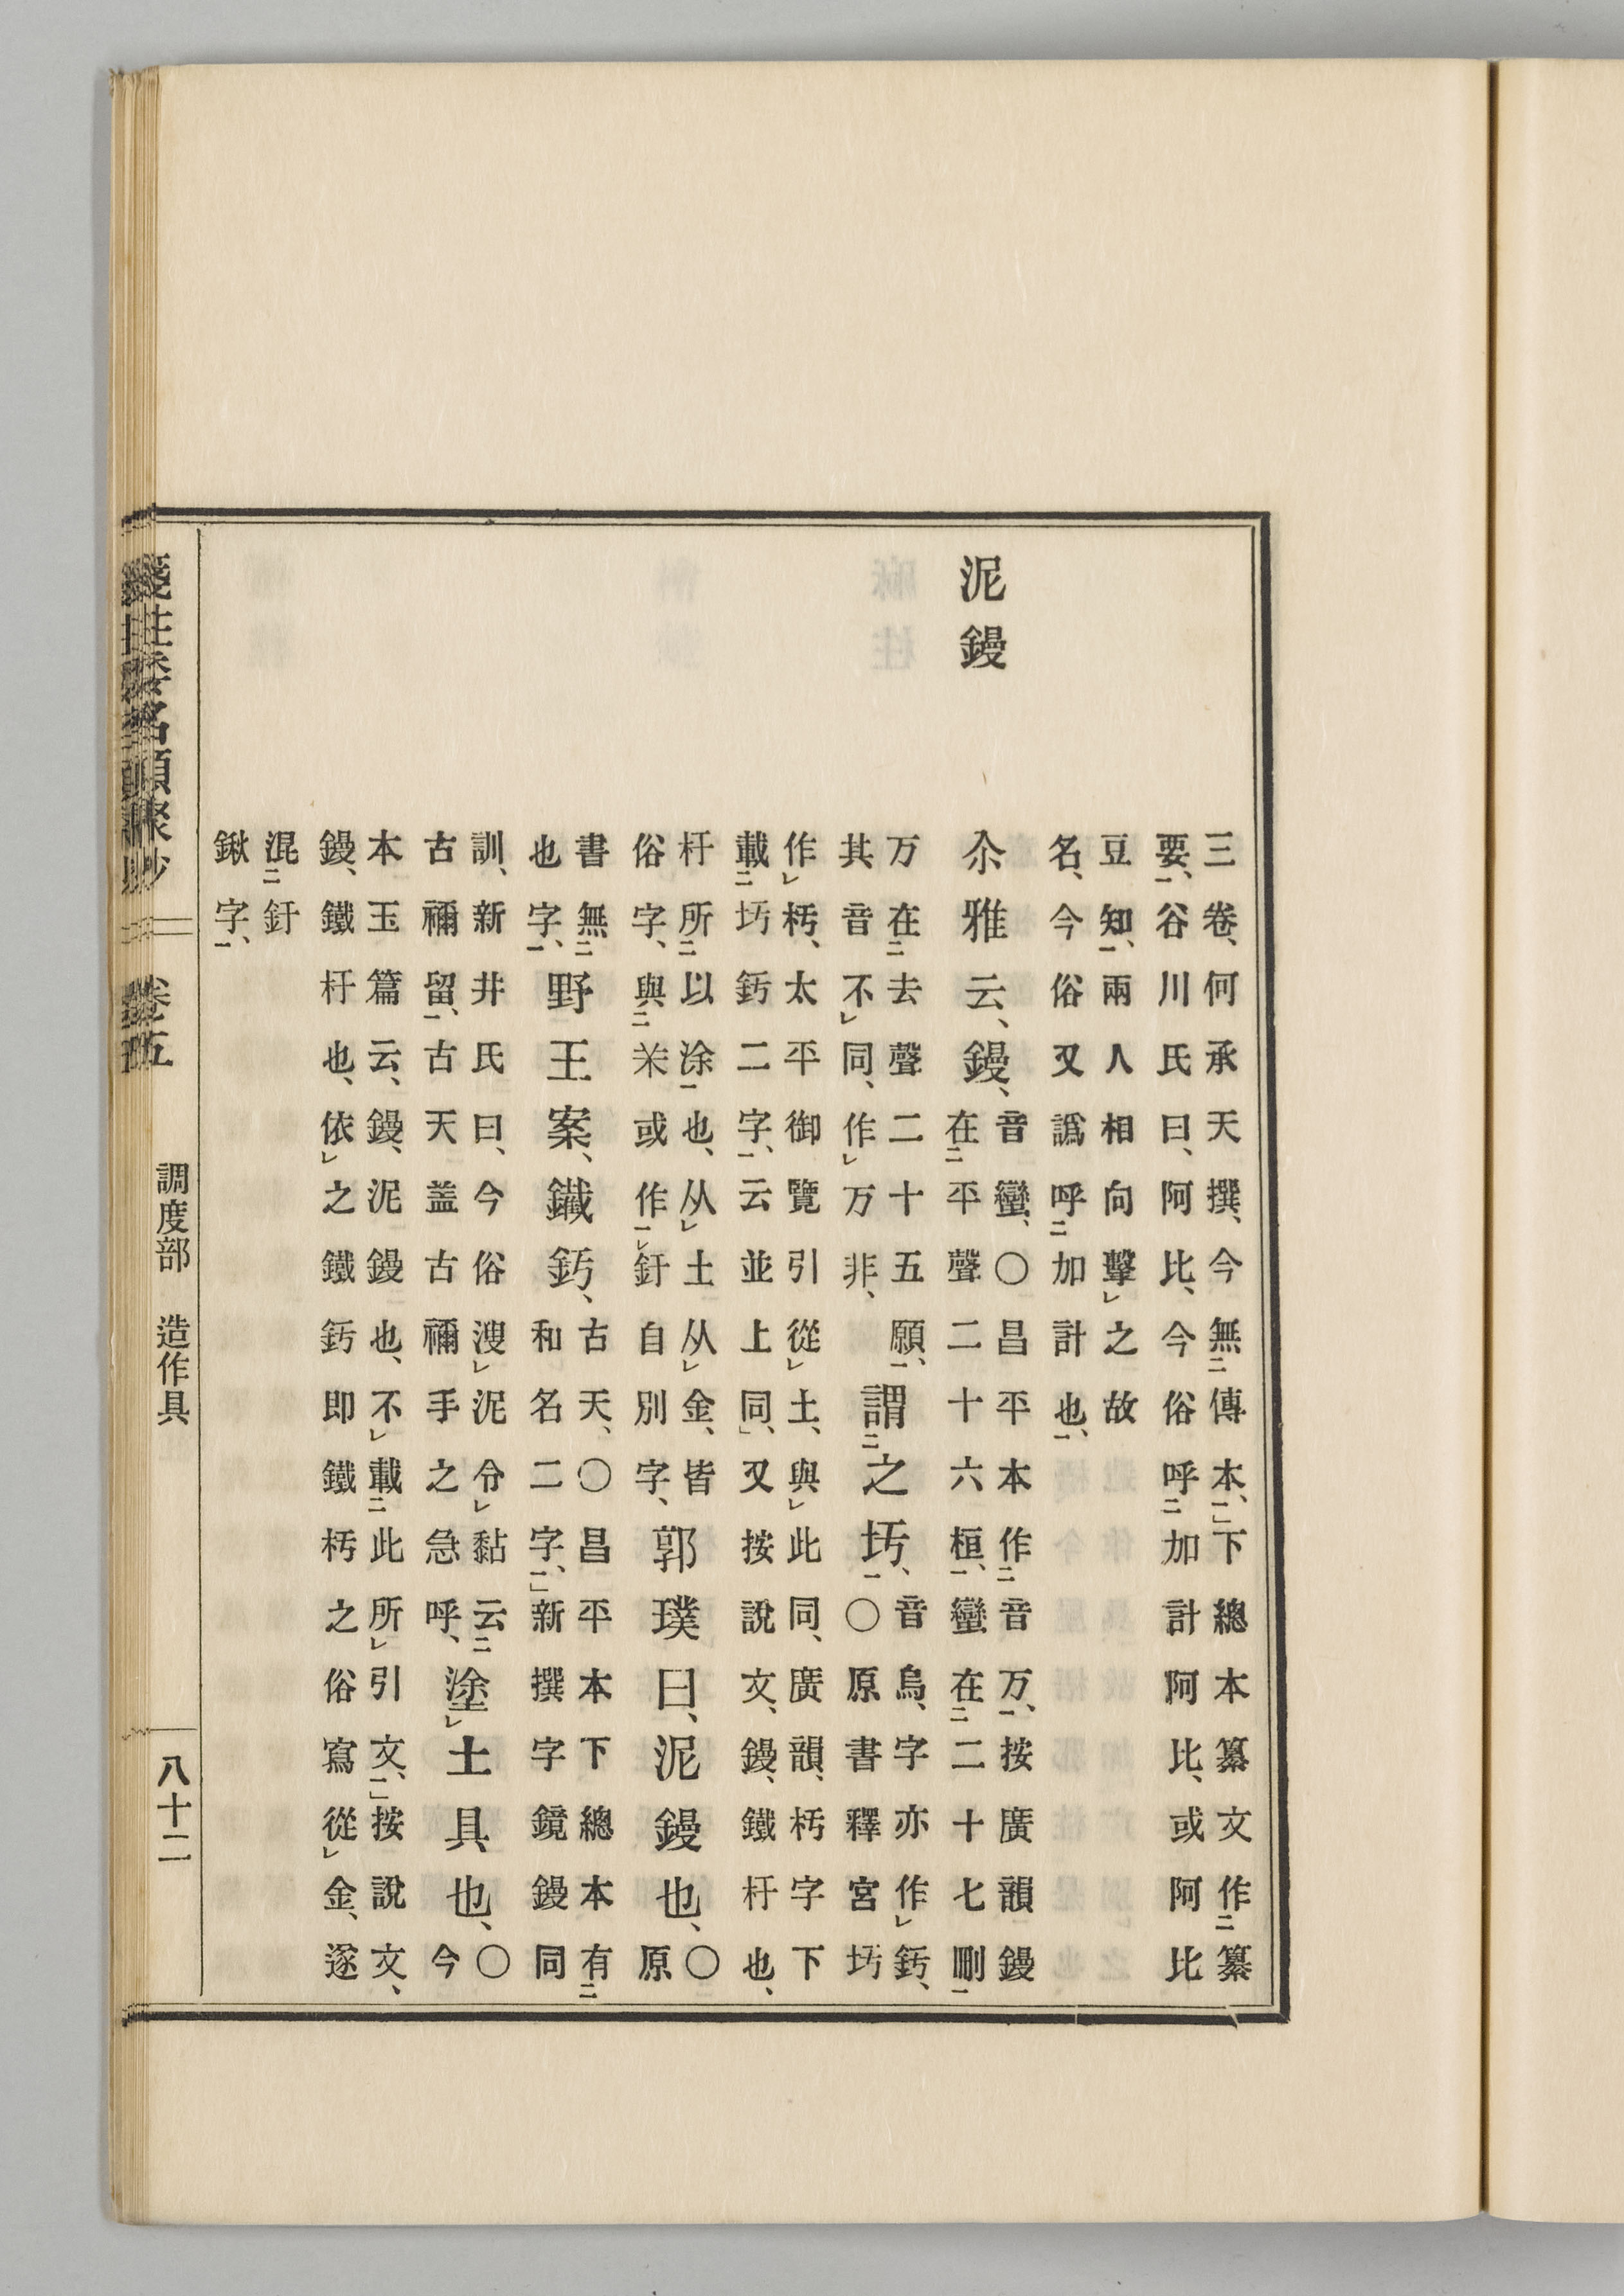 泥鏝
三卷、何承天撰、今無㆓傳本、㆒」下總本纂文作㆓纂
要、㆒谷川氏曰、阿比、今俗呼㆓加計阿比、或阿比
豆知、㆒兩人相向擊㆑之故
名、今俗又譌呼㆓加計也、㆒
尒雅云、鏝、
音蠻、〇昌平本作㆓音万、㆒按廣韻鏝
在㆓平聲二十六桓、㆒蠻在㆓二十七刪㆒
万在㆓去聲二十五願、㆒
其音不㆑同、作㆑万非、
謂㆓之圬、㆒
音烏、字亦作㆑釫、
〇原書釋宮圬
作㆑杇、太平御覽引從㆑土、與㆑此同、廣韻、杇字下
載㆓圬釫二字、㆒云並上同、」又按說文、鏝、鐵杅也、
杅所㆓以涂㆒也、从㆑土从㆑金、皆
俗字、與㆓或作㆒㆑釪自別字、
郭璞曰、泥鏝也、
〇
原
書無㆓
也字、㆒
野王案、鐵釫、
古天、〇昌平本下總本有㆓
和名二字、㆒」新撰字鏡鏝同
訓、新井氏曰、今俗溲㆑泥令㆑黏云㆓
古禰留、㆒古天盖古禰手之急呼、
塗㆑土具也、
〇
今
本玉篇云、鏝、泥鏝也、不㆑載㆓此所㆑引文、㆒」按說文、
鏝、鐵杅也、依㆑之鐵釫即鐵杇之俗寫從㆑金、遂
混㆓釪
鍬字、㆒
箋注倭名類聚抄 卷五 調度部 造作具 八十二